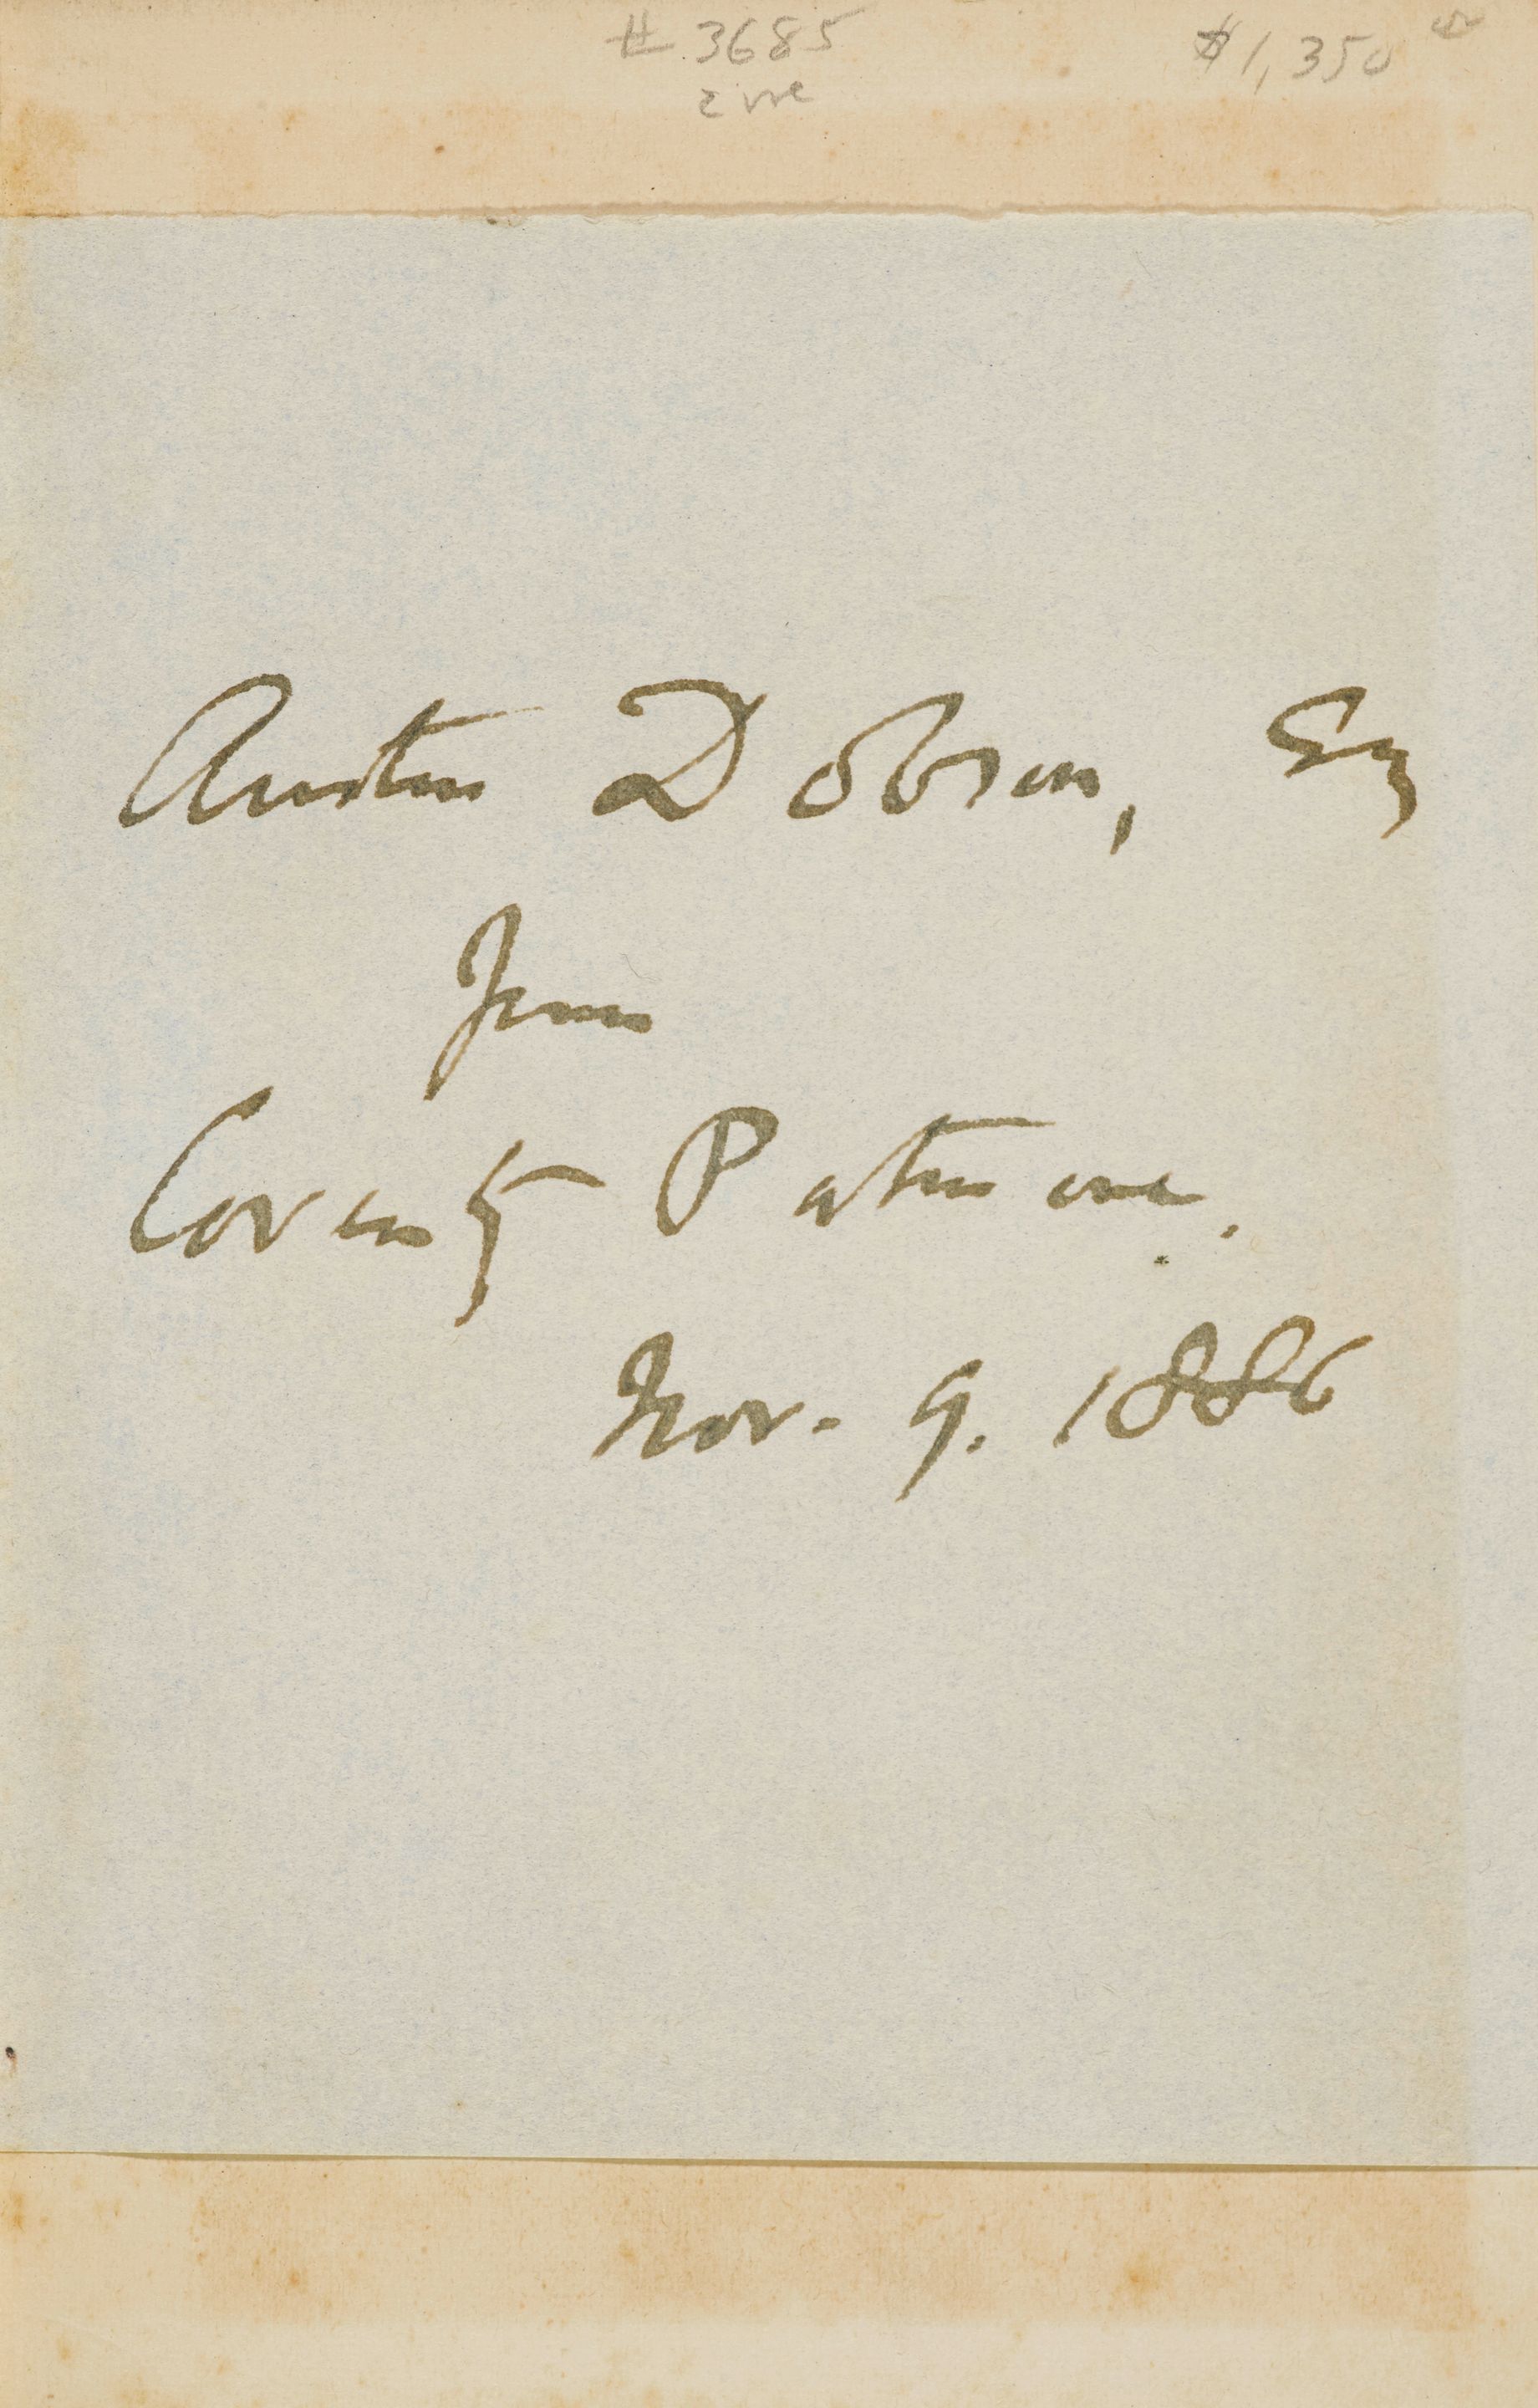 #3685
$1,350
Austin Dobson, Esq
from
Coventry Patmore.
Nov. 9. 1886